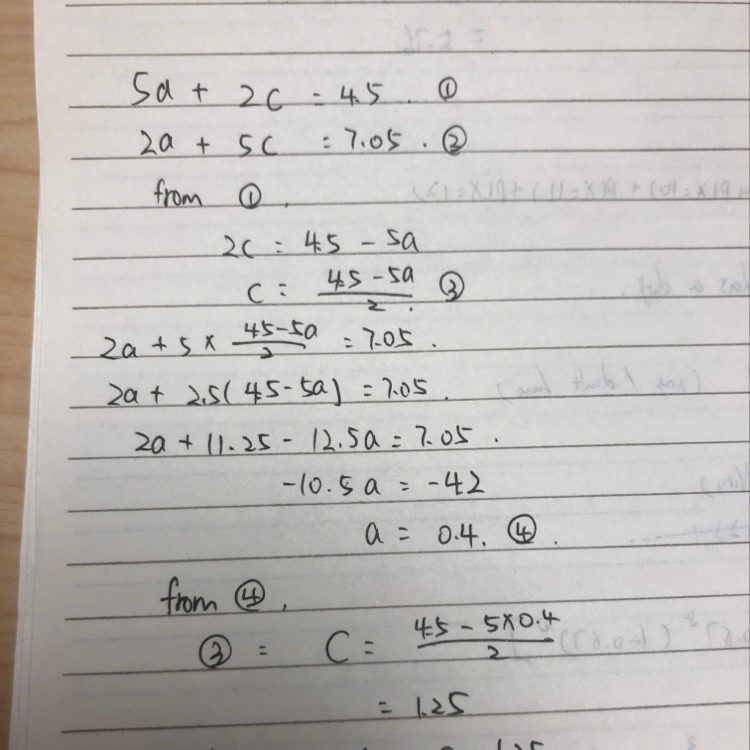 5a + 2c = 4.5. ①
2a + 5c = 7.05. ②
from ①,
2c = 4.5 - 5a
c = \frac{4.5-5a}{2}. ③
2a + 5 × \frac{4.5-5a}{2} = 7.05.
2a + 2.5(4.5-5a) = 7.05.
2a + 11.25 - 12.5a = 7.05.
-10.5a = -42
a = 0.4. ④.
from ④,
③ = C = \frac{4.5-5×0.4}{2}
= 1.25